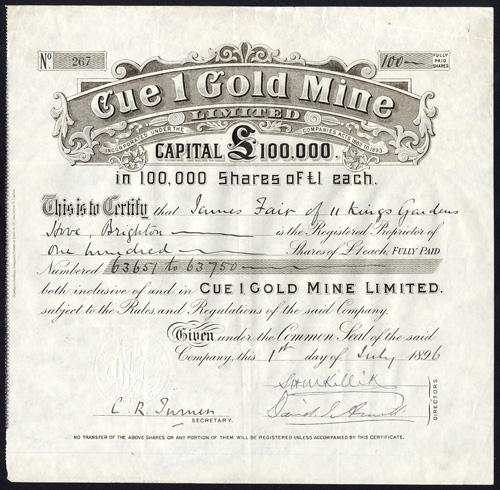 No 267
100 FULLY PAID SHARES
Cue 1 Gold Mine
LIMITED
INCORPORATED UNDER THE COMPANIES ACTS 1862 TO 1893.
CAPITAL £100,000
in 100,000 Shares of £1 each.
This is to Certify that James Fair of 11 Kings Gardens
Hove, Brighton is the Registered Proprietor of
One hundred Shares of £1 each, FULLY PAID
Numbered 63651 to 63750
both inclusive of and in CUE 1 GOLD MINE LIMITED.
subject to the Rules and Regulations of the said Company.
Given under the Common Seal of the said
Company, this 1st day of July 1896
Killik
C. R. Turner
SECRETARY.
David
DIRECTORS
NO TRANSFER OF THE ABOVE SHARES OR ANY PORTION OF THEM WILL BE REGISTERED UNLESS ACCOMPANIED BY THIS CERTIFICATE.